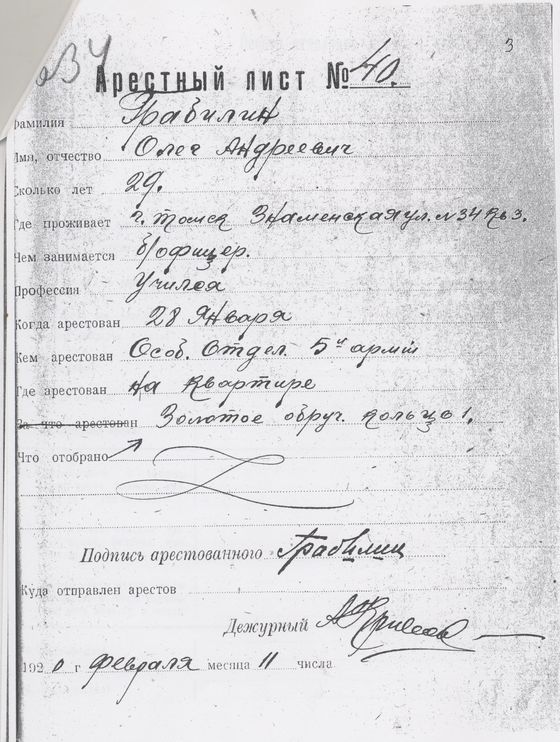 3
Арестный лист № 40.
Фамилия Грабилин
Имя, отчество Олег Андреевич
Сколько лет 29.
Где проживает г. Томск Знаменская ул. № 34 кв 3.
Чем занимается б/офицер.
Профессия Учился
Когда арестован 28 Января
Кем арестован Особ. Отдел. 5й армии
Где арестован на квартире
За что арестован Золотое обруч. кольцо 1.
Что отобрано
Подпись арестованного Грабилин
Куда отправлен арестов
Дежурный
1920 г февраля месяца 11 числа